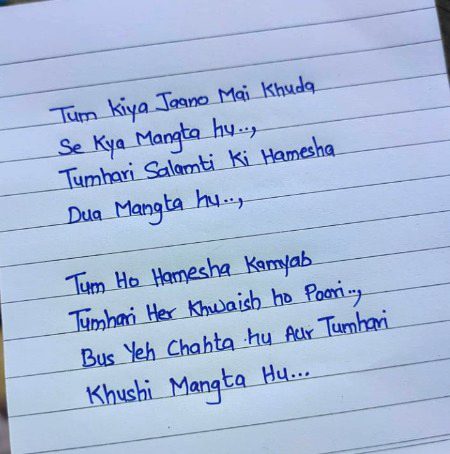 Tum Kiya Jaano Mai Khuda
Se Kya Mangta hu..,
Tumhari Salamti Ki Hamesha
Dua Mangta hu..,
Tum Ho Hamesha Kamyab
Tumhari Her Khwaish ho Poori..,
Bus Yeh Chahta hu Aur Tumhari
Khushi Mangta Hu...